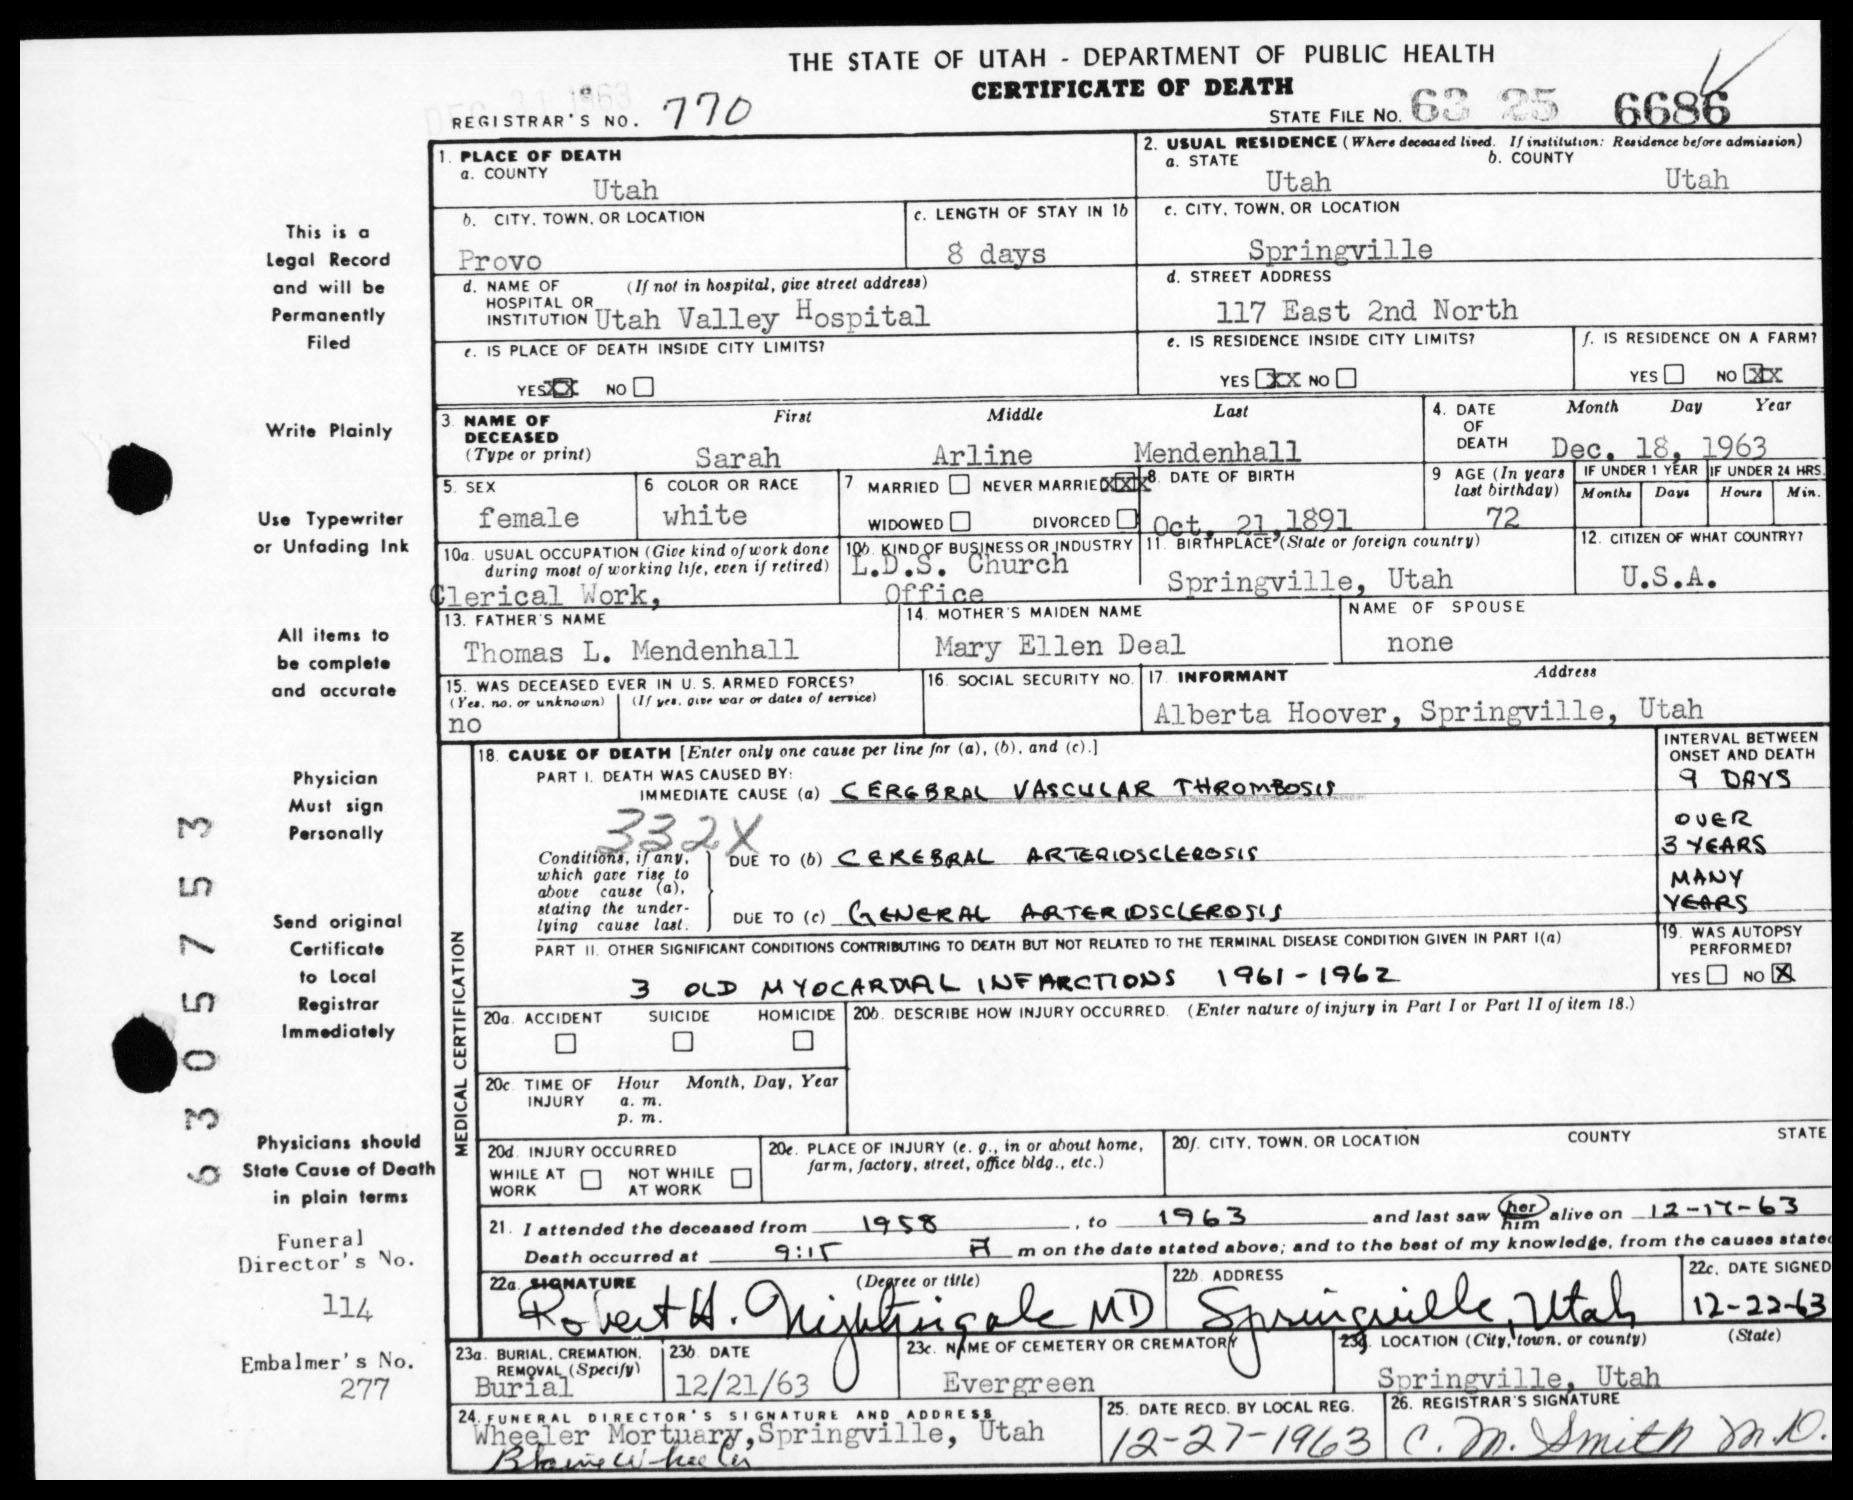 THE STATE OF UTAH - DEPARTMENT OF PUBLIC HEALTH
CERTIFICATE OF DEATH
DEC 31 1963
REGISTRAR'S NO. 770
STATE FILE NO. 63 25 6686
1. PLACE OF DEATH
a. COUNTY
Utah
2. USUAL RESIDENCE (Where deceased lived. If institution: Residence before admission)
a. STATE b. COUNTY
Utah Utah
b. CITY, TOWN, OR LOCATION
Provo
c. LENGTH OF STAY IN 1b
8 days
c. CITY, TOWN, OR LOCATION
Springville
d. NAME OF (If not in hospital, give street address)
HOSPITAL OR
INSTITUTION Utah Valley Hospital
d. STREET ADDRESS
117 East 2nd North
e. IS PLACE OF DEATH INSIDE CITY LIMITS?
YES XX NO
e. IS RESIDENCE INSIDE CITY LIMITS?
YES XX NO
f. IS RESIDENCE ON A FARM?
YES NO XX
3. NAME OF DECEASED
(Type or print)
First Middle Last
Sarah Arline Mendenhall
4. DATE OF DEATH
Month Day Year
Dec. 18, 1963
5. SEX
female
6 COLOR OR RACE
white
7 MARRIED NEVER MARRIED XXX
WIDOWED DIVORCED
8. DATE OF BIRTH
Oct. 21, 1891
9 AGE (In years last birthday)
72
IF UNDER 1 YEAR IF UNDER 24 HRS.
Months Days Hours Min.
10a. USUAL OCCUPATION (Give kind of work done
during most of working life, even if retired)
Clerical Work,
10b. KIND OF BUSINESS OR INDUSTRY
L.D.S. Church
Office
11. BIRTHPLACE (State or foreign country)
Springville, Utah
12. CITIZEN OF WHAT COUNTRY?
U.S.A.
13. FATHER'S NAME
Thomas L. Mendenhall
14. MOTHER'S MAIDEN NAME
Mary Ellen Deal
NAME OF SPOUSE
none
15. WAS DECEASED EVER IN U.S. ARMED FORCES?
(Yes, no, or unknown) (If yes, give war or dates of service)
no
16. SOCIAL SECURITY NO.
17. INFORMANT Address
Alberta Hoover, Springville, Utah
MEDICAL CERTIFICATION
18. CAUSE OF DEATH [Enter only one cause per line for (a), (b), and (c).]
INTERVAL BETWEEN
ONSET AND DEATH
PART I. DEATH WAS CAUSED BY:
IMMEDIATE CAUSE (a) CEREBRAL VASCULAR THROMBOSIS
9 DAYS
332X
Conditions, if any,
which gave rise to
above cause (a),
stating the under-
lying cause last.
DUE TO (b) CEREBRAL ARTERIOSCLEROSIS
OVER
3 YEARS
DUE TO (c) GENERAL ARTERIOSCLEROSIS
MANY
YEARS
PART II. OTHER SIGNIFICANT CONDITIONS CONTRIBUTING TO DEATH BUT NOT RELATED TO THE TERMINAL DISEASE CONDITION GIVEN IN PART I(a)
3 OLD MYOCARDIAL INFARCTIONS 1961-1962
19. WAS AUTOPSY
PERFORMED?
YES NO X
20a. ACCIDENT SUICIDE HOMICIDE
20b. DESCRIBE HOW INJURY OCCURRED. (Enter nature of injury in Part I or Part II of item 18.)
20c. TIME OF INJURY
Hour Month, Day, Year
a. m.
p. m.
20d. INJURY OCCURRED
WHILE AT WORK NOT WHILE AT WORK
20e. PLACE OF INJURY (e. g., in or about home,
farm, factory, street, office bldg., etc.)
20f. CITY, TOWN, OR LOCATION COUNTY STATE
21. I attended the deceased from 1958, to 1963 and last saw her him alive on 12-17-63
Death occurred at 9:15 A m on the date stated above; and to the best of my knowledge, from the causes stated
22a. SIGNATURE (Degree or title)
Robert H. Nightingale MD
22b. ADDRESS
Springville, Utah
22c. DATE SIGNED
12-22-63
23a. BURIAL, CREMATION,
REMOVAL (Specify)
Burial
23b. DATE
12/21/63
23c. NAME OF CEMETERY OR CREMATORY
Evergreen
23d. LOCATION (City, town, or county) (State)
Springville, Utah
24. FUNERAL DIRECTOR'S SIGNATURE AND ADDRESS
Wheeler Mortuary, Springville, Utah
Blaine Wheeler
25. DATE RECD. BY LOCAL REG.
12-27-1963
26. REGISTRAR'S SIGNATURE
C. M. Smith M.D.
This is a
Legal Record
and will be
Permanently
Filed
Write Plainly
Use Typewriter
or Unfading Ink
All items to
be complete
and accurate
Physician
Must sign
Personally
Send original
Certificate
to Local
Registrar
Immediately
Physicians should
State Cause of Death
in plain terms
Funeral
Director's No.
114
Embalmer's No.
277
6305753